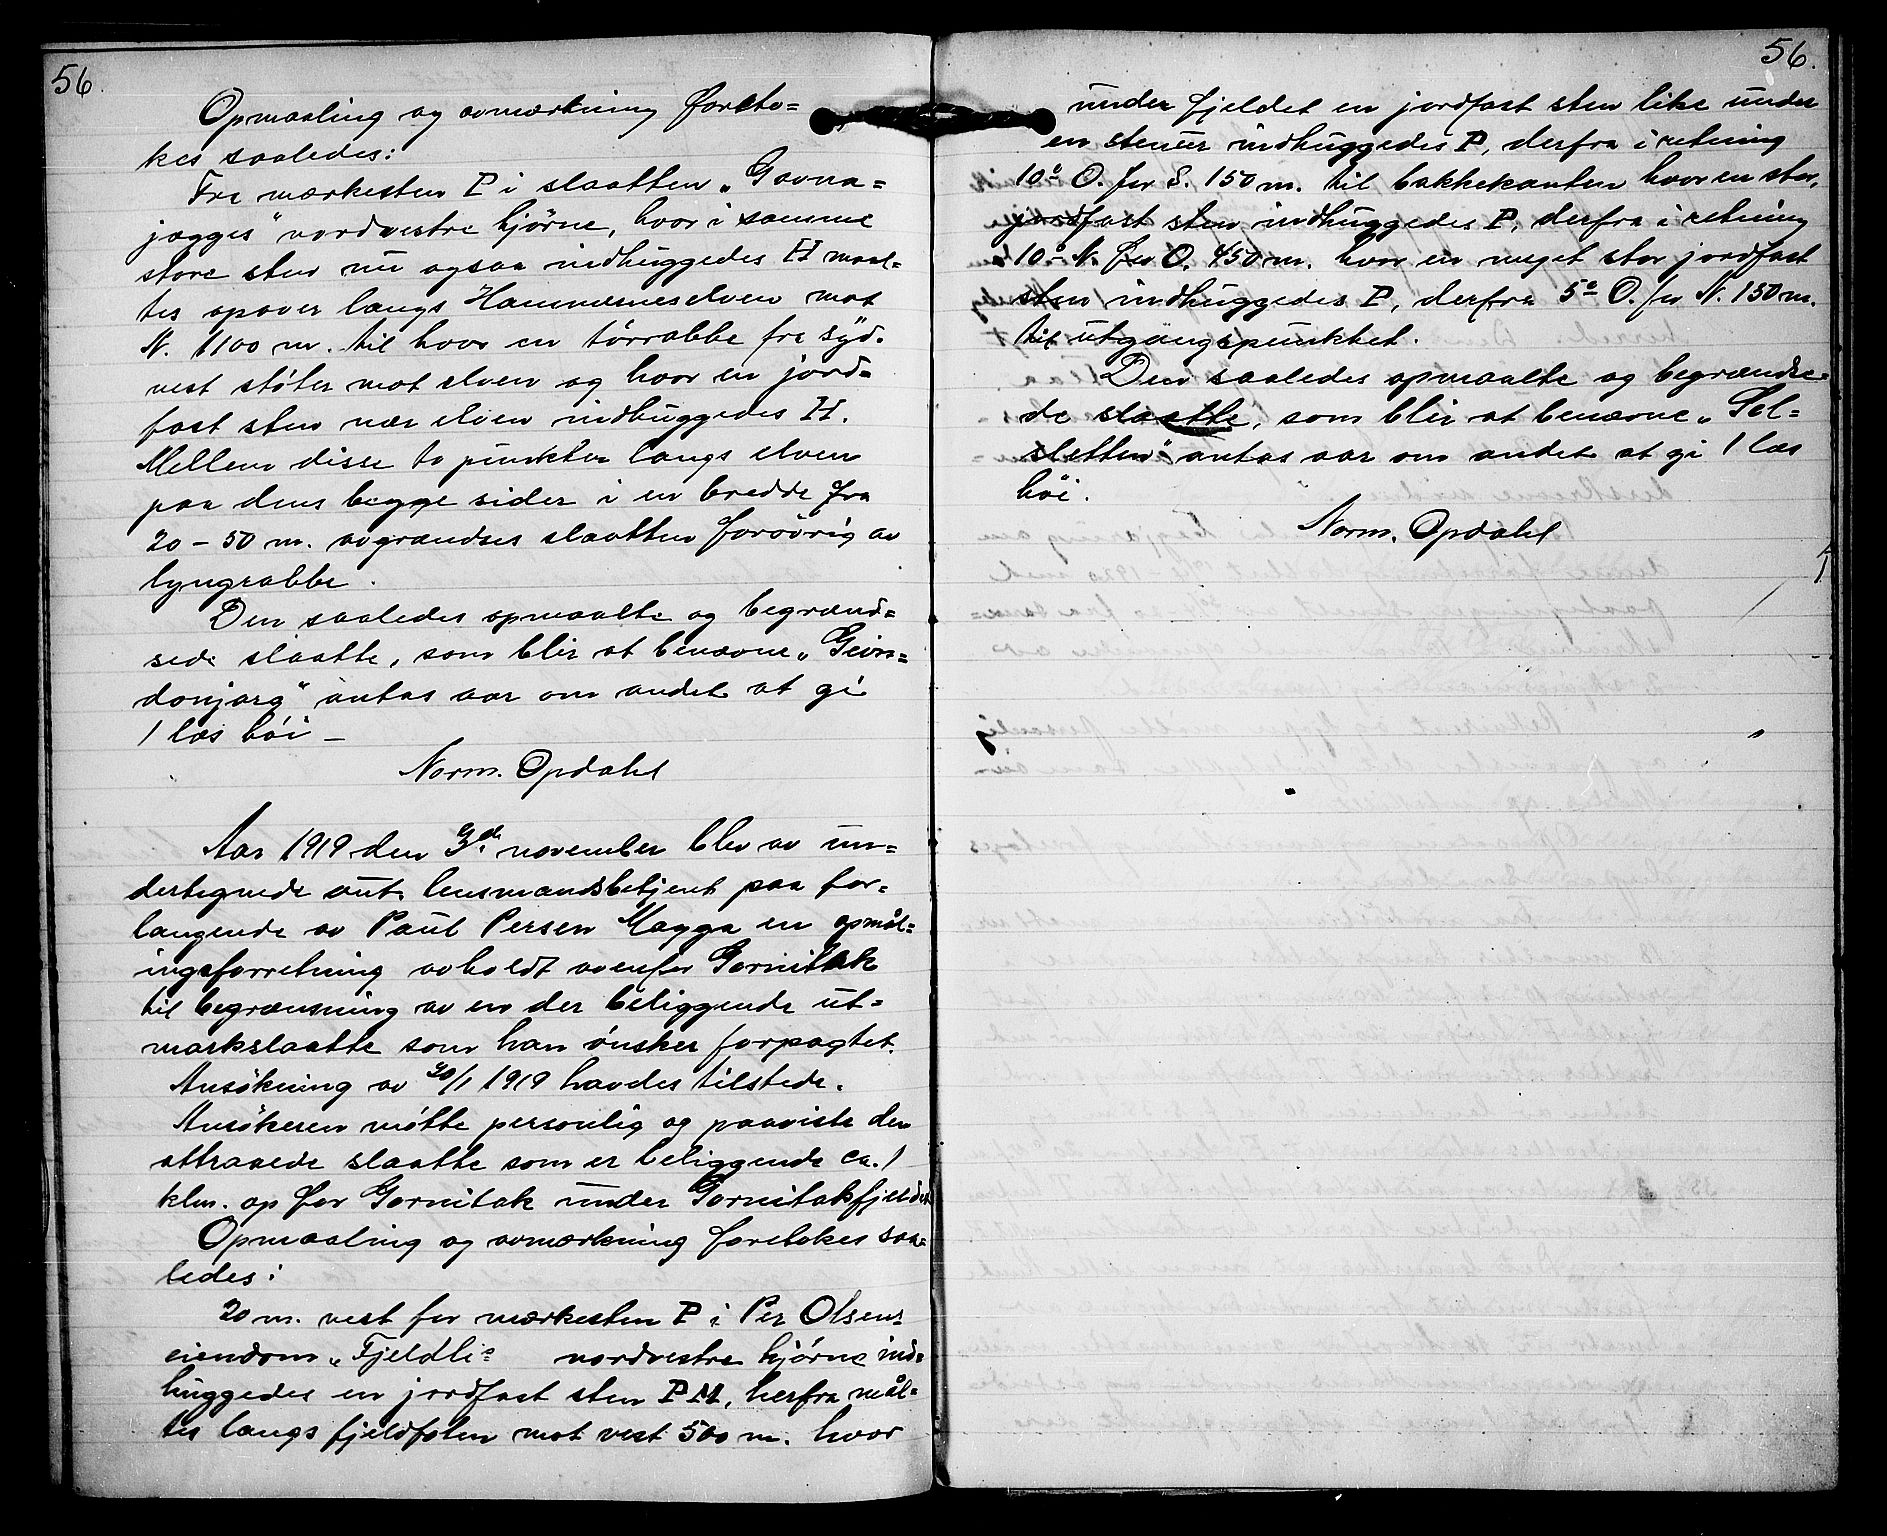 56.
Opmaaling og avmærkning foreto=
kes saaledes:
Fra mærkesten P i slaatten „Gavna=
jogges" nordvestre hjörne, hvor i samme
store sten nu ogsaa indhuggedes H maal=
tes opover langs Hamnæneselven mot
N. 1100 m. til hvor en törrabbe fra syd.
vest stöter mot elven og hvor en jord=
fast sten nær elven indhuggedes H.
Mellem disse to punkter langs elven
paa dens begge sider i en bredde fra
20 – 50 m. avgrændses slaatten forövrig av
lyngrabbe.
Den saaledes opmaalte og begrænd=
sede slaatte, som blir at benævne „
donjarg" antas aar om andet at gi
1 læs höi –
Norm. Opdahl
Aar 1919 den 3d. november blev av un=
dertegnede aut. lensmandsbetjent paa for=
langende av Paul Persen Magga en opmål=
ingsforretning avholdt ovenfor Gornitak
til begrænsning av en der beliggende ut=
markslaatte som han önsker forpagtet.
Ansökning av 20/1 1919 havdes tilstede.
Ansökeren mötte personlig og paaviste den
attraaede slaatte som er beliggende ca. 1
klm. op for Gornitak under Gornitakfjeldet
Opmaaling og avmærkning foretokes saa=
ledes:
20 m. vest for mærkesten P i Per Olsens
eiendom „Fjeldli" nordvestre hjörne ind=
huggedes en jordfast sten PM, herfra mål=
tes langs fjeldfoten mot vest 500 m. hvor
56.
under fjeldet en jordfast sten like under
en stenur indhuggedes P, derfra i retning
10° O. for S. 150 m. til bakkekanten hvor en stor,
jordfast sten indhuggedes P, derfra i retning
10° N. for O. 450 m. hvor en meget stor jordfast
sten indhuggedes P, derfra 5° O. for N. 150 m.
til utgangspunktet.
Den saaledes opmaalte og begrændse=
de slaatte, som blir at benævne „Sel=
sletten" antas aar om andet at gi 1 læs
höi.
Norm. Opdahl